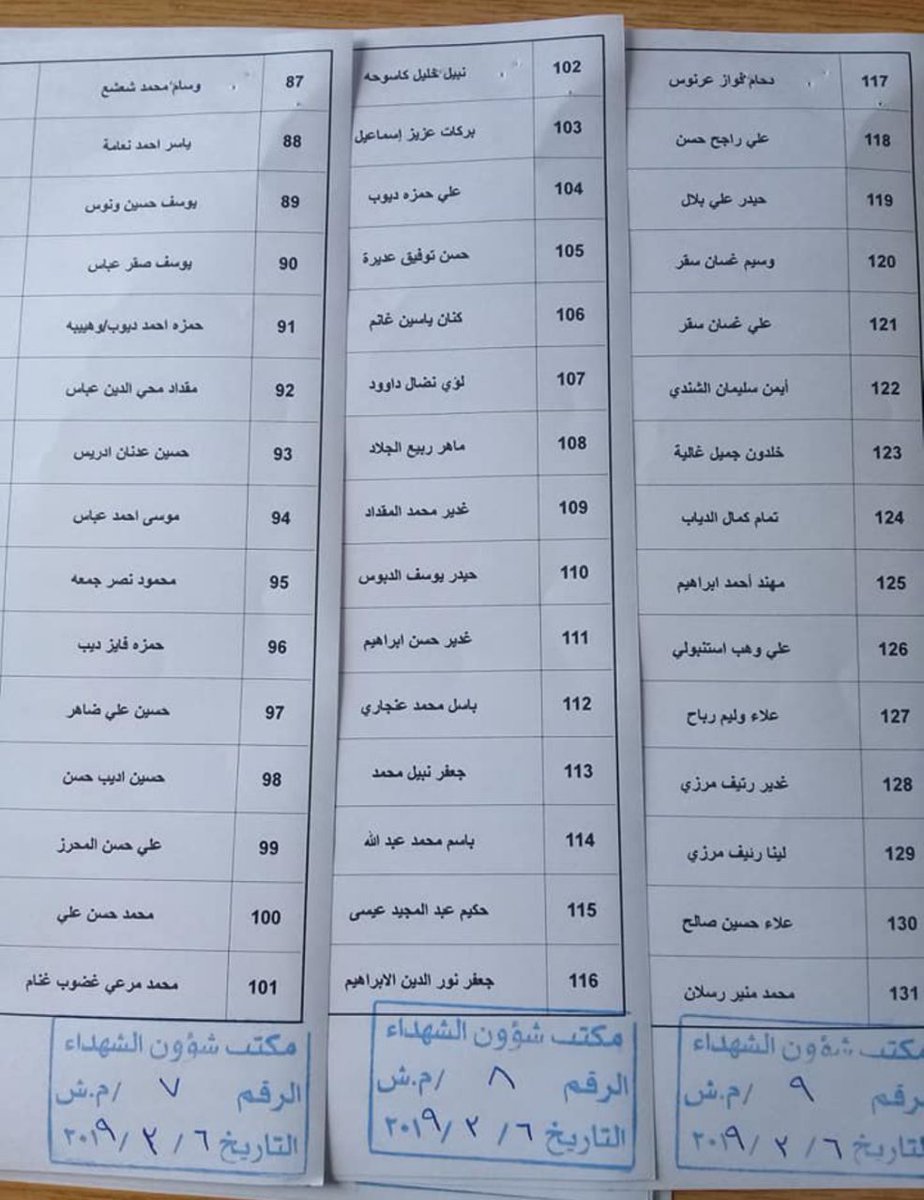 87 وسام محمد شعشع
88 ياسر احمد نعامة
89 يوسف حسين ونوس
90 يوسف صقر عباس
91 حمزه احمد ديوب/وهيبيه
92 مقداد محي الدين عباس
93 حسين عدنان ادريس
94 موسى احمد عباس
95 محمود نصر جمعه
96 حمزه فايز ديب
97 حسين علي ضاهر
98 حسين اديب حسن
99 علي حسن المحرز
100 محمد حسن علي
101 محمد مرعي غضوب غنام
مكتب شؤون الشهداء
الرقم ٧ /م.ش
التاريخ ٦ / ٢ /٢٠١٩
102 نبيل خليل كاسوحه
103 بركات عزيز إسماعيل
104 علي حمزه ديوب
105 حسن توفيق عديرة
106 كنان ياسين غانم
107 لؤي نضال داوود
108 ماهر ربيع الجلاد
109 غدير محمد المقداد
110 حيدر يوسف الدبوس
111 غدير حسن ابراهيم
112 باسل محمد عنجاري
113 جعفر نبيل محمد
114 باسم محمد عبد الله
115 حكيم عبد المجيد عيسى
116 جعفر نور الدين الابراهيم
مكتب شؤون الشهداء
الرقم ٨ /م.ش
التاريخ ٦ / ٢ /٢٠١٩
117 دحام فواز عرنوس
118 علي راجح حسن
119 حيدر علي بلال
120 وسيم غسان سقر
121 علي غسان سقر
122 أيمن سليمان الشندي
123 خلدون جميل غالية
124 تمام كمال الدياب
125 مهند أحمد ابراهيم
126 علي وهب استنبولي
127 علاء وليم رباح
128 غدير رئيف مرزي
129 لينا رئيف مرزي
130 علاء حسين صالح
131 محمد منير رسلان
مكتب شؤون الشهداء
الرقم ٩ /م.ش
التاريخ ٦ / ٢ /٢٠١٩